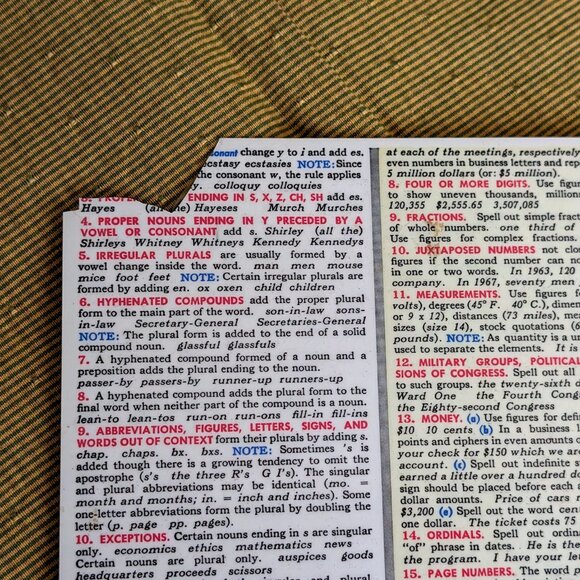 sonant change y to i and add es.
ecstasy ecstasies NOTE: Since
the consonant w, the rule applies
y. colloquy colloquies
3. PROPER NOUNS ENDING IN S, X, Z, CH, SH add es.
Hayes (all the) Hayeses Murch Murches
4. PROPER NOUNS ENDING IN Y PRECEDED BY A
VOWEL OR CONSONANT add s. Shirley (all the)
Shirleys Whitney Whitneys Kennedy Kennedys
5. IRREGULAR PLURALS are usually formed by a
vowel change inside the word. man men mouse
mice foot feet NOTE: Certain irregular plurals are
formed by adding en. ox oxen child children
6. HYPHENATED COMPOUNDS add the proper plural
form to the main part of the word. son-in-law sons-
in-law Secretary-General Secretaries-General
NOTE: The plural form is added to the end of a solid
compound noun. glassful glassfuls
7. A hyphenated compound formed of a noun and a
preposition adds the plural ending to the noun.
passer-by passers-by runner-up runners-up
8. A hyphenated compound adds the plural form to the
final word when neither part of the compound is a noun.
lean-to lean-tos run-on run-ons fill-in fill-ins
9. ABBREVIATIONS, FIGURES, LETTERS, SIGNS, AND
WORDS OUT OF CONTEXT form their plurals by adding s.
chap. chaps. bx. bxs. NOTE: Sometimes 's is
added though there is a growing tendency to omit the
apostrophe (s's the three R's G I's). The singular
and plural abbreviations may be identical (mo. =
month and months; in. = inch and inches). Some
one-letter abbreviations form the plural by doubling the
letter (p. page pp. pages).
10. EXCEPTIONS. Certain nouns ending in s are singular
only. economics ethics mathematics news
Certain nouns are plural only. auspices goods
headquarters proceeds scissors
at each of the meetings, respectively
even numbers in business letters and rep
5 million dollars (or: $5 million).
8. FOUR OR MORE DIGITS. Use figu
to show uneven thousands, millions
120,355 $2,555.65 3,507,085
9. FRACTIONS. Spell out simple fract
of whole numbers. one third of
Use figures for complex fractions.
10. JUXTAPOSED NUMBERS not clo
figures if the second number can no
in one or two words. In 1963, 120
company. In 1967, seventy men
11. MEASUREMENTS. Use figures fo
volts), degrees (45° F. 40° C.), dimen
or 9 x 12), distances (73 miles), meas
sizes (size 14), stock quotations (6
pounds). NOTE: As quantity is a un
used to separate the elements. It is
12. MILITARY GROUPS, POLITICAL
SIONS OF CONGRESS. Spell out all
to such groups. the twenty-sixth d
Ward One the Fourth Cong
the Eighty-second Congress
13. MONEY. (a) Use figures for defin
$10 10 cents (b) In a business l
points and ciphers in even amounts o
your check for $150 which we are
account. (c) Spell out indefinite
earned a little over a hundred dolla
sign should be placed before each
dollar amounts. Price of cars r
$3,200 (e) Spell out the word cent
one dollar. The ticket costs 75
14. ORDINALS. Spell out ordinals
"of" phrase in dates. He is the
the program. I have your lett
15. PAGE NUMBERS. The word p